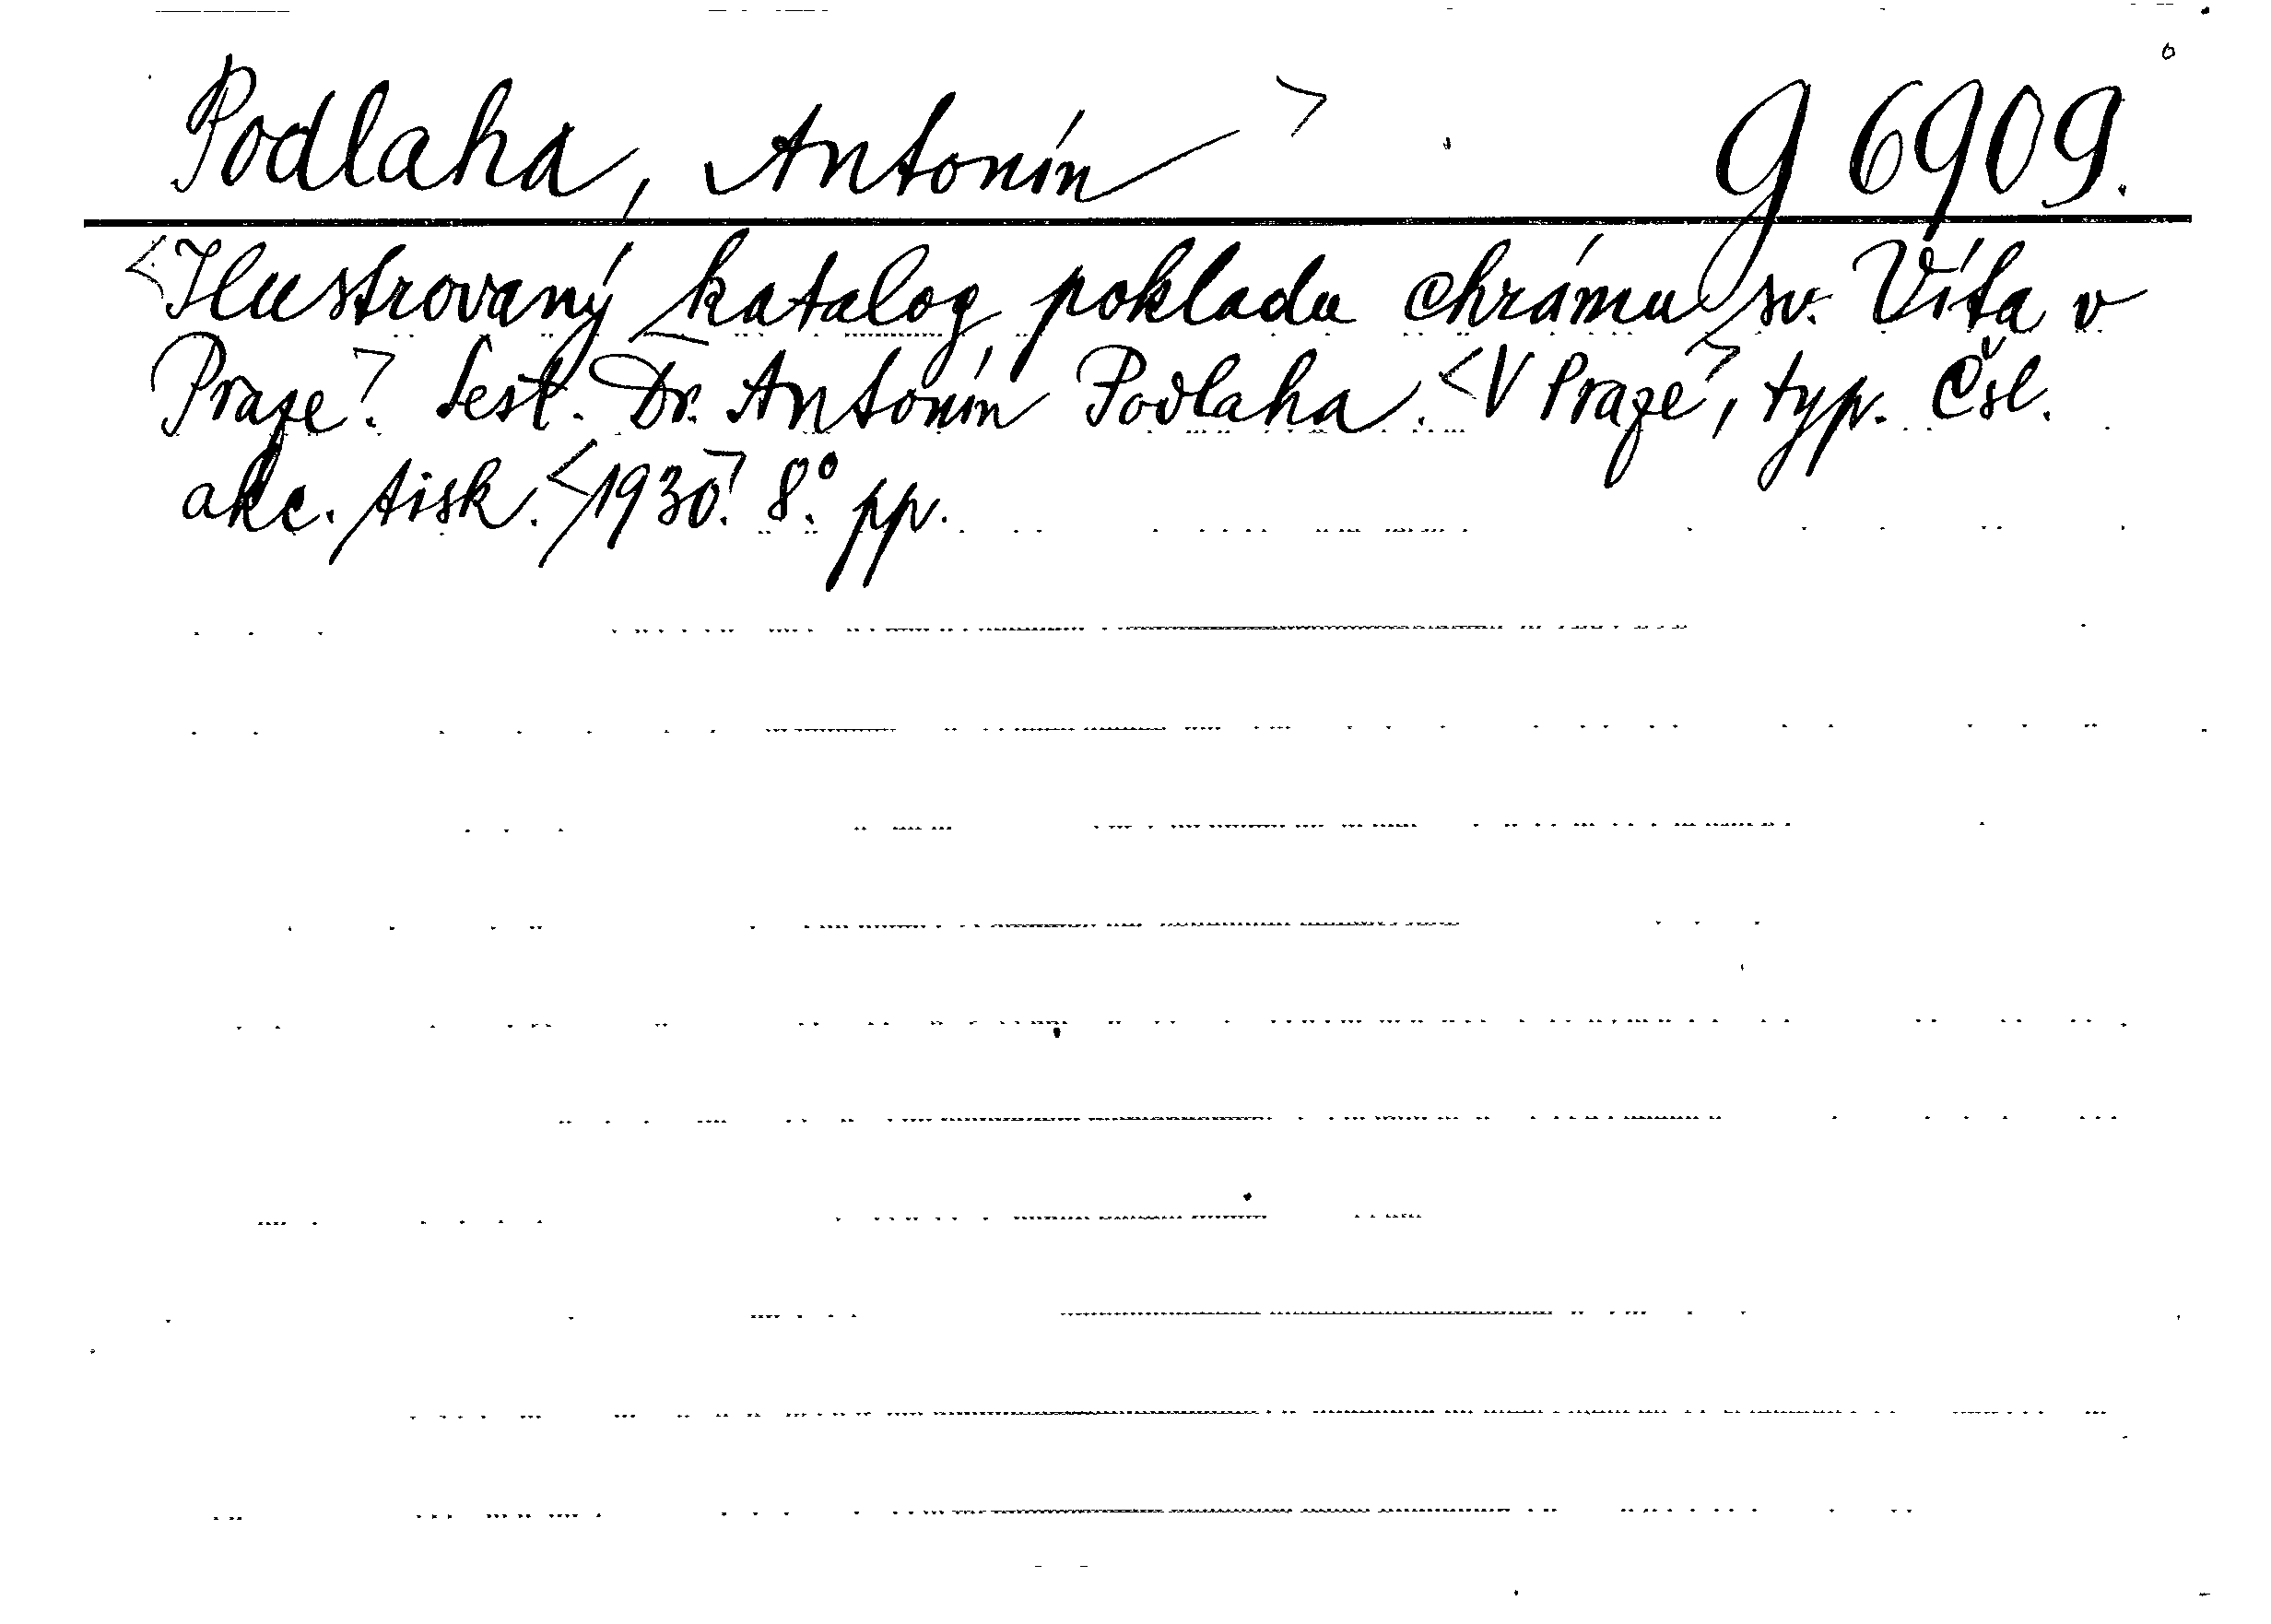 Podlaha, Antonín > g 6909.
<Ilustrovaný katalog pokladu chrámu sv. Víta v
Praze>. Sest. Dr. Antonín Podlaha. <V Praze>, typ. Čsl.
akc. tisk. <1930>. 8.° pp.